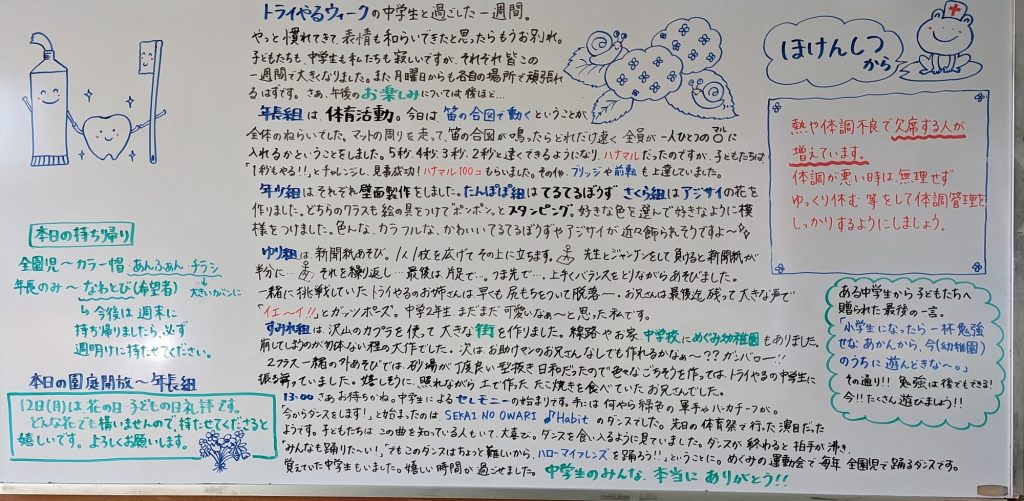 トライやるウィークの中学生と過ごした一週間。
やっと慣れてきて、表情も和らいできたと思ったらもうお別れ。
子どもたちも、中学生も私たちも寂しいですが、それぞれ皆この
一週間で大きくなりました。また月曜日からも各自の場所で頑張れ
るはずです。さぁ、午後のお楽しみについては後ほど…
年長組は体育活動。今日は笛の合図で動くということが
全体のねらいでした。マットの周りを走って、笛の合図が鳴ったらどれだけ速く全員が一人ひとつの○マルに
入れるかということをしました。5秒、4秒、3秒、2秒と速くできるようになり、ハナマルだったのですが、子どもたちは、
「1秒もやる!!」とチャレンジし、見事成功!ハナマル100コもらいました。その他、ブリッジや前転も上達していました。
年少組はそれぞれ壁面製作をしました。たんぽぽ組はてるてるぼうず さくら組はアジサイの花を
作りました。どちらのクラスも絵の具をつけて"ポンポン"とスタンピング。好きな色を選んで好きなように模
様をつけました。色んな、カラフルな、かわいいてるてるぼうずやアジサイが近々飾られそうですよ〜
ゆり組は新聞紙あそび。1人1枚を広げてその上に立ちます。先生とジャンケンをして負けると新聞紙が
半分に… それを繰り返し…最後は片足で…。つま先で…。上手くバランスをとりながらあそびました。
一緒に挑戦していたトライやるのお姉さんは早くも尻もちをついて脱落〜。お兄さんは最後迄残って大きな声で
「イェ〜イ!!」とガッツポーズ。中学2年生、まだまだ可愛いなぁ〜と思った私です。
すみれ組は、沢山のカプラを使って大きな街を作りました。線路やお家、中学校にめぐみ幼稚園もありました。
崩してしまうのが勿体ない程の大作でした。次は、お助けマンのお兄さんなしでも作れるかなぁ〜??ガンバロー!!
2クラス一緒の外あそびでは、砂場が丁度良い型抜き日和だったので色々なごちそうを作っては、トライやるの中学生に
振る舞っていました。嬉しそうに、照れながら土で作ったたこ焼きを食べていたお兄さんでした。
13:00 さぁお待ちかね。中学生によるセレモニーの始まりです。手には何やら緑色の軍手やハーカチーフが。
「今からダンスをします!」と始まったのはSEKAI NO OWARI ♪Habitのダンスでした。先日の体育祭で行った演目だった
ようです。子どもたちは、この曲を知っている人もいて、大喜び。ダンスを食い入るように見ていました。ダンスが終わると拍手が沸き、
「みんなも踊りた〜い!」「でもこのダンスはちょっと難しいから、ハローマイフレンズを踊ろう!!」ということに。めぐみの運動会で毎年全園児で踊るダンスです。
覚えていた中学生もいました。嬉しい時間が過ごせました。中学生のみんな、本当にありがとう!!
本日の持ち帰り
全園児〜カラー帽 あんふぁん チラシ
→大きいカバンに
年長のみ〜なわとび(希望者)
↳今後は週末に
持ち帰りましたら、必ず
週明けに持たせてください。
本日の園庭開放〜年長組
12日(月)は花の日 子どもの日礼拝です。
どんな花でも構いませんので、持たせてくださると
嬉しいです。よろしくお願いします。
ほけんしつから
熱や体調不良で欠席する人が
増えています。
体調が悪い時は無理せず
ゆっくり休む等をして体調管理を
しっかりするようにしましょう。
ある中学生から子どもたちへ
贈られた最後の一言。
「小学生になったら一杯勉強
せなあかんから、今(幼稚園)
のうちに遊んどきな〜。」
その通り!!勉強は後でもできる!
今!!たくさん遊びましょう!!